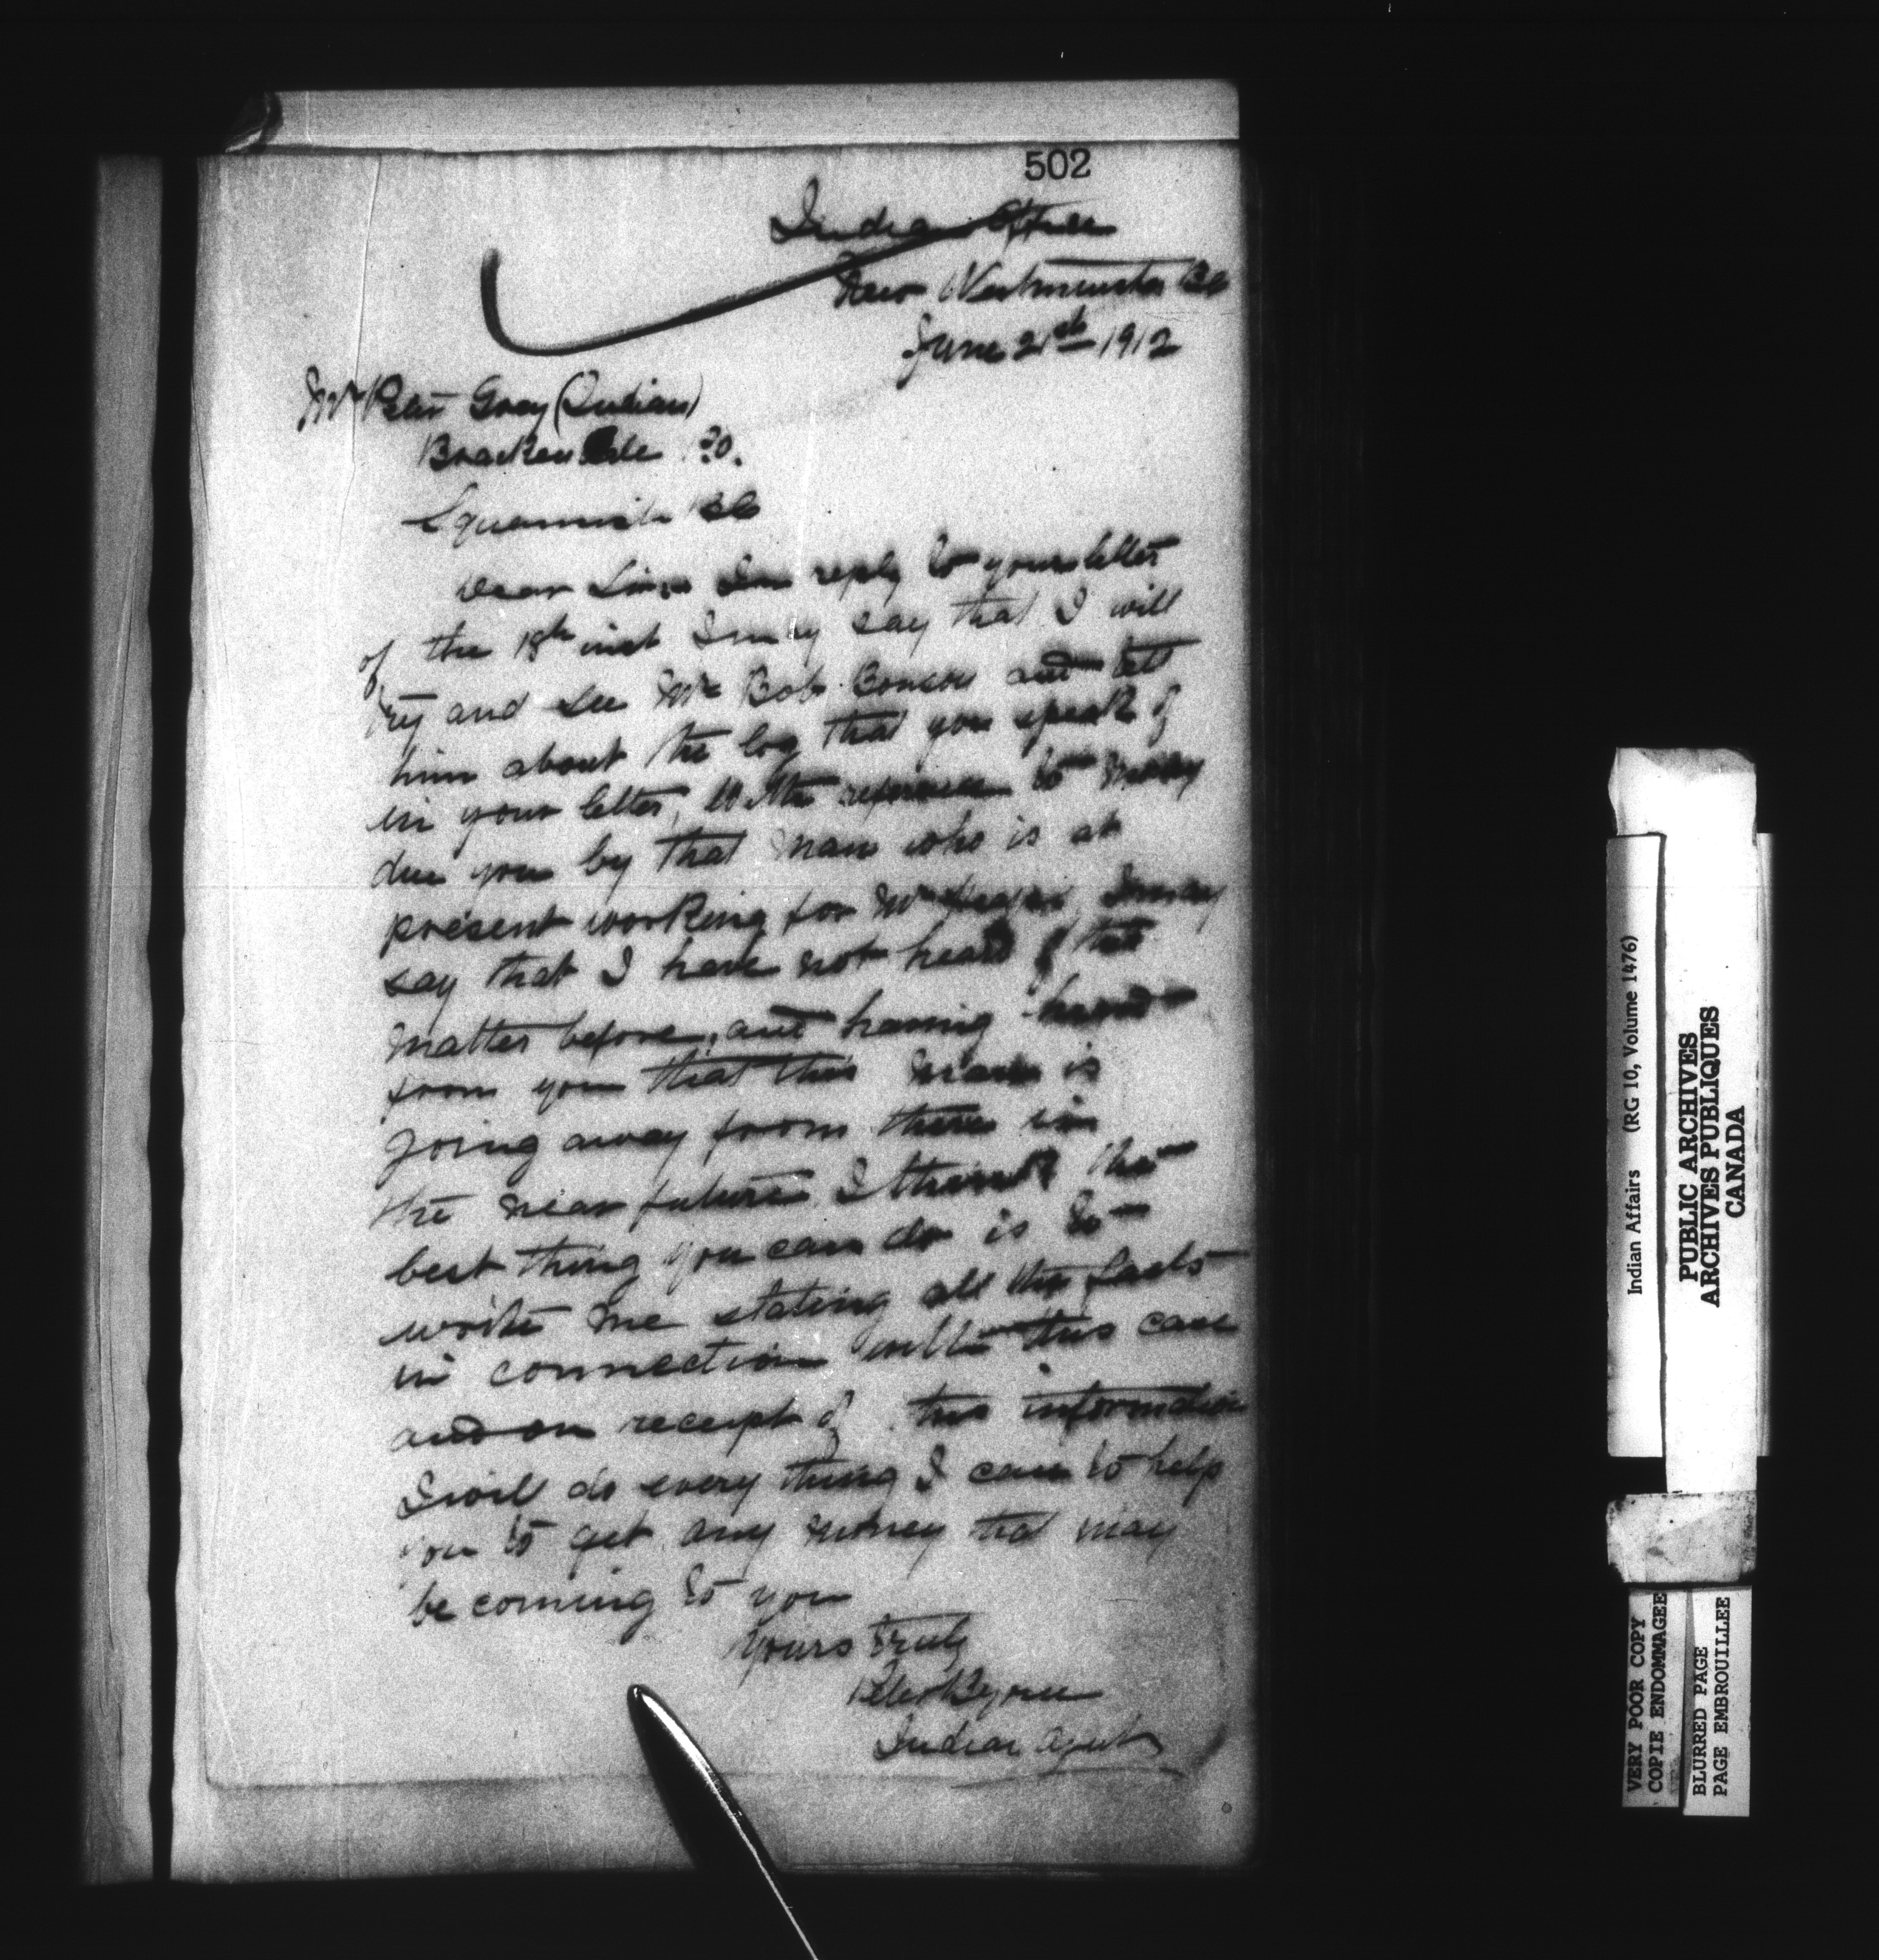 502
Indian Office
New Westminster BC
June 21st 1912
Mr Peter Grey (Indian)
Brackendale P.O.
Squamish BC
Dear Sir, In reply to your letter
of the 18th inst I may say that I will
try and see Mr Bob Bonson and tell
him about the log that you speak of
in your letter, With reference to money
due you by that man who is at
present working for Mr I may
say that I have not heard of this
matter before, and having heard
from you that this man is
going away from there in
the near future I think the
best thing you can do is to
write me stating all the facts
in connection with this case
and on receipt of this information
I will do every thing I can to help
you to get any money that may
be coming to you
Yours truly
Peter Byrne
Indian Agent
Indian Affairs (RG 10, Volume 1476)
PUBLIC ARCHIVES
ARCHIVES PUBLIQUES
CANADA
VERY POOR COPY
COPIE ENDOMMAGEE
BLURRED PAGE
PAGE EMBROUILLEE